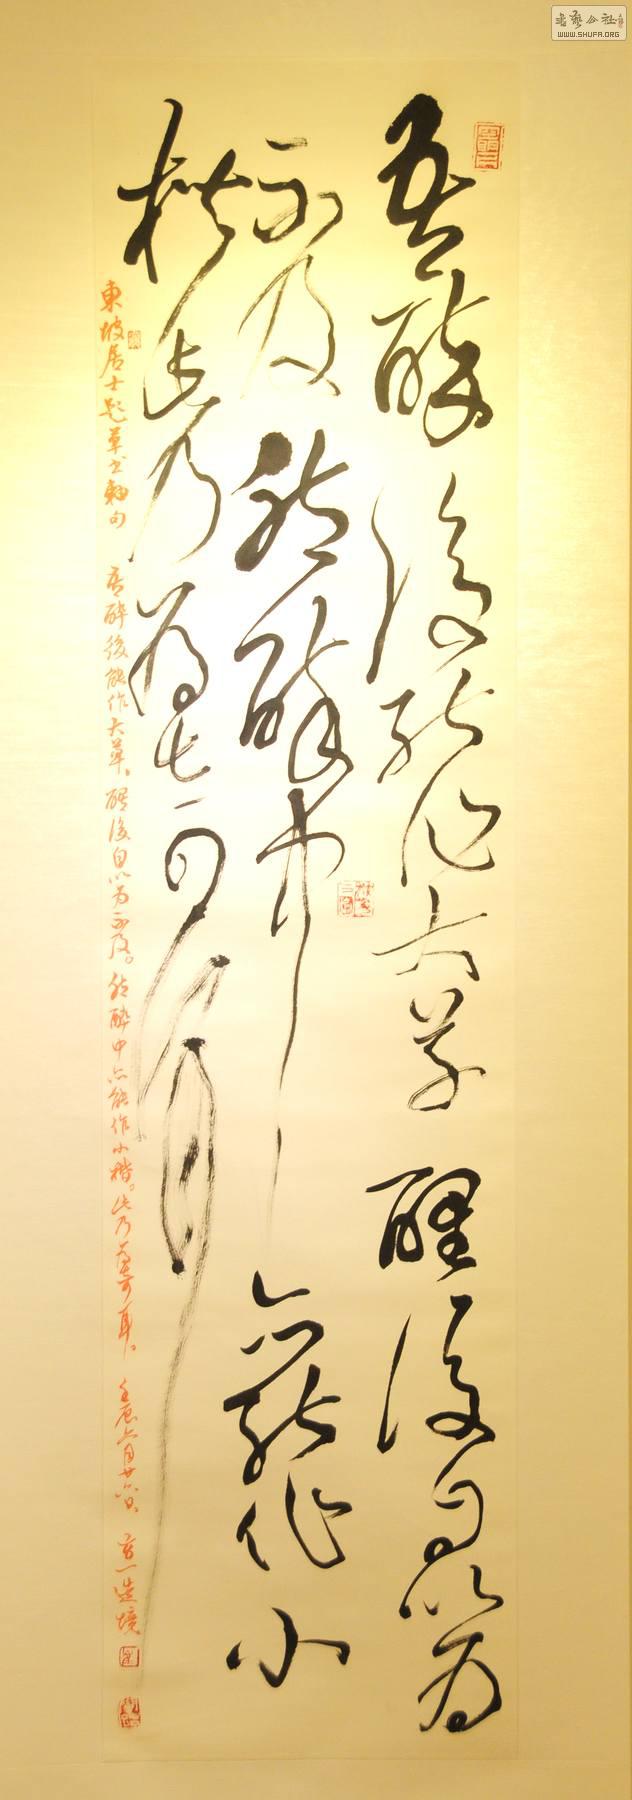 書艺公社
WWW.SHUFA.ORG
吾醉後能作大草醒後自以为
不及然醉中亦能作小
楷此乃为七可耳
東坡居士題草书軸句 吾醉後能作大草、醒後自以为不及。然醉中亦能作小楷。此乃为奇耳。 壬辰六月廿六日 一造境